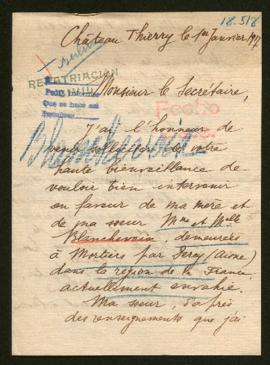 18.518
Château Thierry le 1er Janvier 1917
REPATRIACION
Monsieur le Secrétaire,
Pedir informes
Que se hace así
Fecho
J'ai l'honneur de
venir solliciter de votre
Blancheverain
haute bienveillance de
vouloir bien intervenir
en faveur de ma mère et
de ma soeur Mme et Melle
demeurées
à Mortiers par Crécy (Aisne)
dans la région de la France
actuellement envahie.
Ma soeur, d'après
des renseignements que j'ai